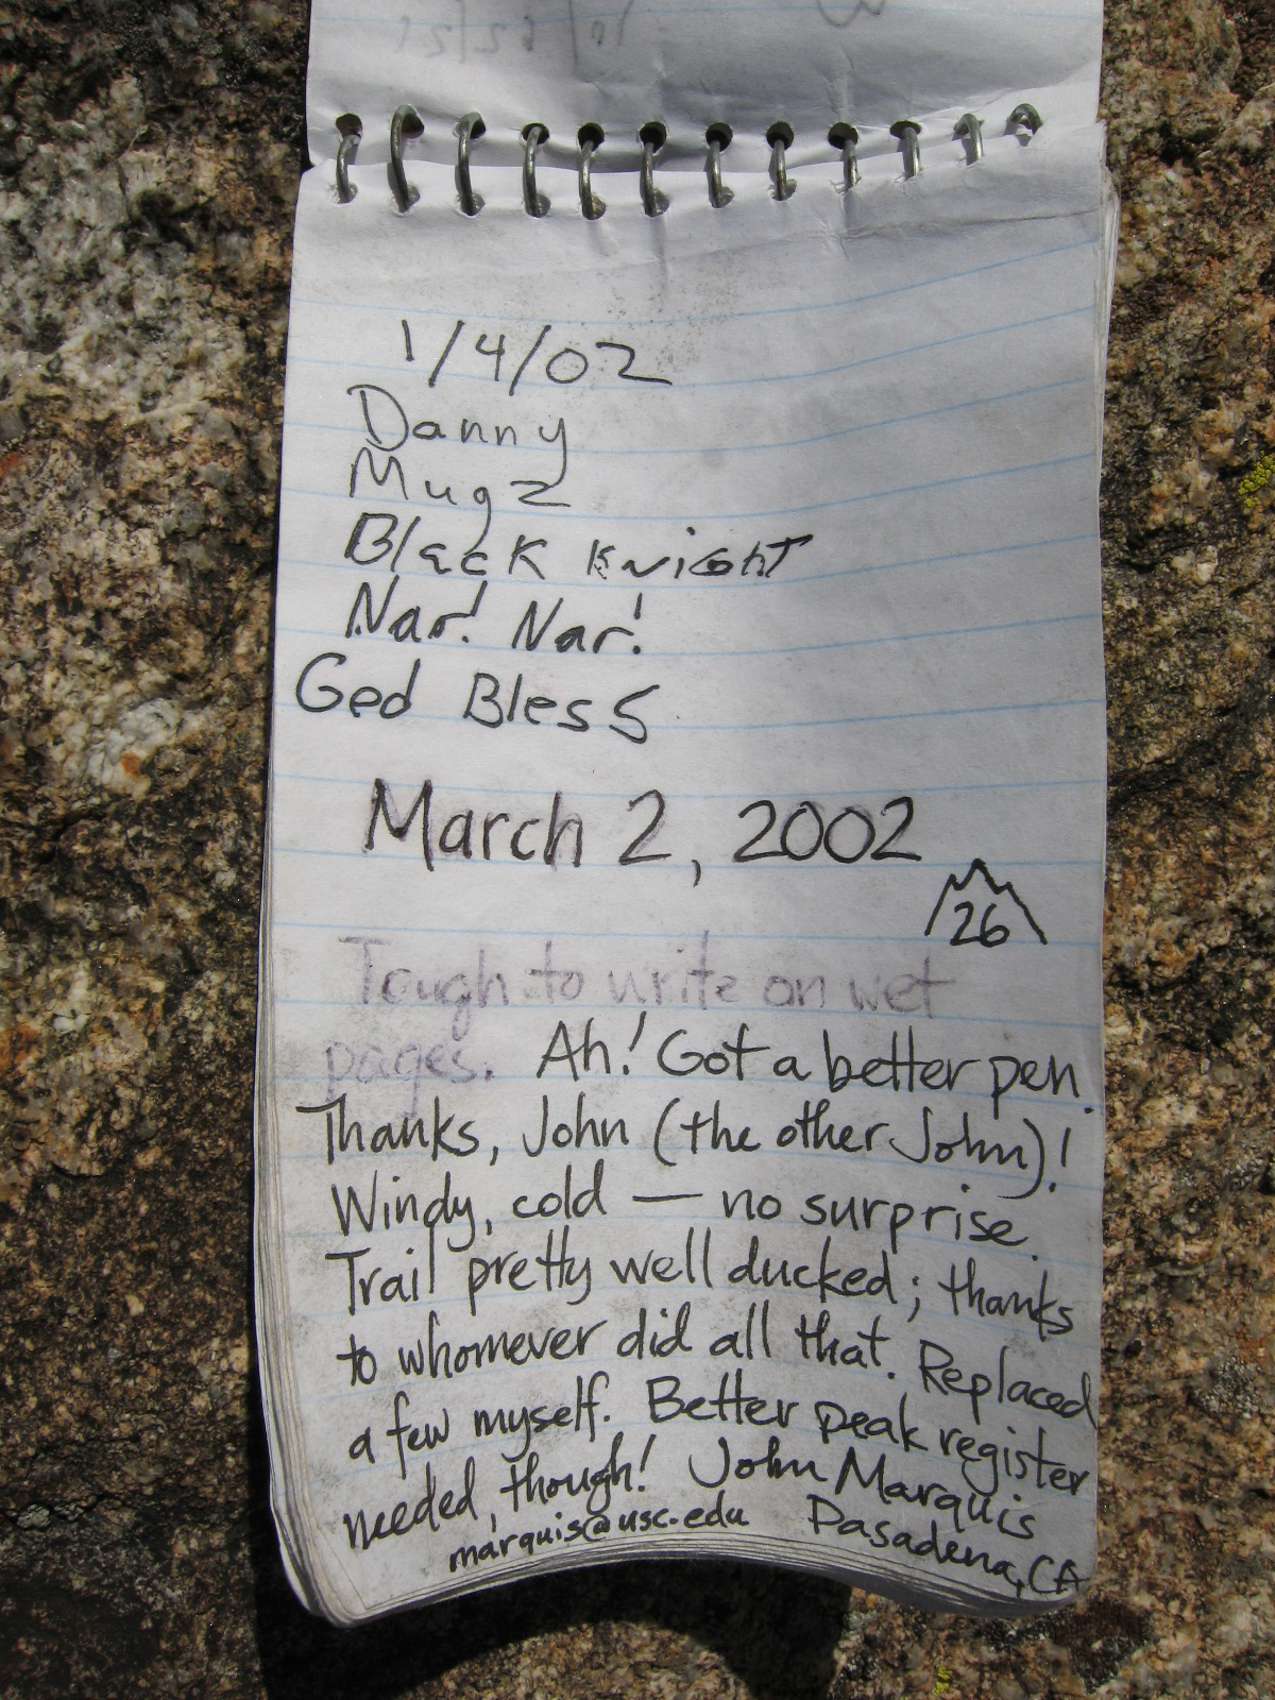 1/4/02
Danny
Mugz
Black Knight
Nar! Nar!
God Bless
March 2, 2002
26
Tough to write on wet
pages. Ah! Got a better pen.
Thanks, John (the other John)!
Windy, cold — no surprise.
Trail pretty well ducked; thanks
to whomever did all that. Replaced
a few myself. Better peak register
needed, though! John Marquis
marquis@usc.edu Pasadena, CA